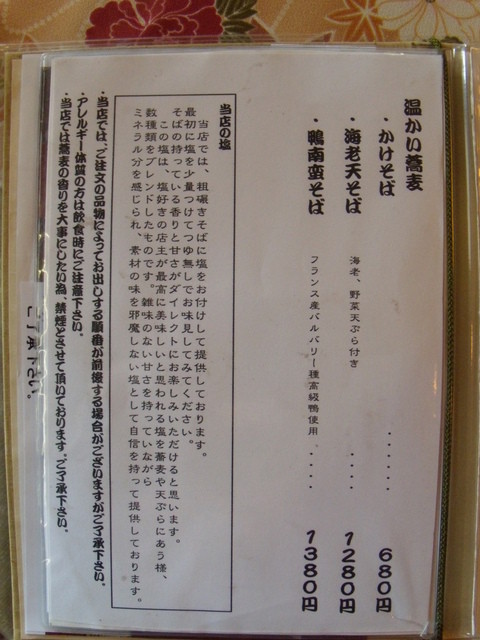 温かい蕎麦
・かけそば ・・・・・・・ 680円
・海老天そば 海老、野菜天ぷら付き ・・・・ 1280円
・鴨南蛮そば フランス産バルバリー種高級鴨使用 ・・・・ 1380円
当店の塩
当店では、粗碾きそばに塩をお付けして提供しております。
最初に塩を少量つけてつゆ無しでお味見してみてください。
そばの持っている香りと甘さがダイレクトにお楽しみいただけると思います。
この塩は、塩好きの店主が最高に美味しいと思われる塩を蕎麦や天ぷらにあう様、
数種類をブレンドしたものです。雑味のない甘さを持っていながら
ミネラル分を感じられ、素材の味を邪魔しない塩として自信を持って提供しております。
・当店では、ご注文の品物によってお出しする順番が前後する場合がございますがご了承下さい。
・アレルギー体質の方は飲食時にご注意下さい。
・当店では蕎麦の香りを大事にしたい為、禁煙とさせて頂いております。ご了承下さい。
ご了承下さい。